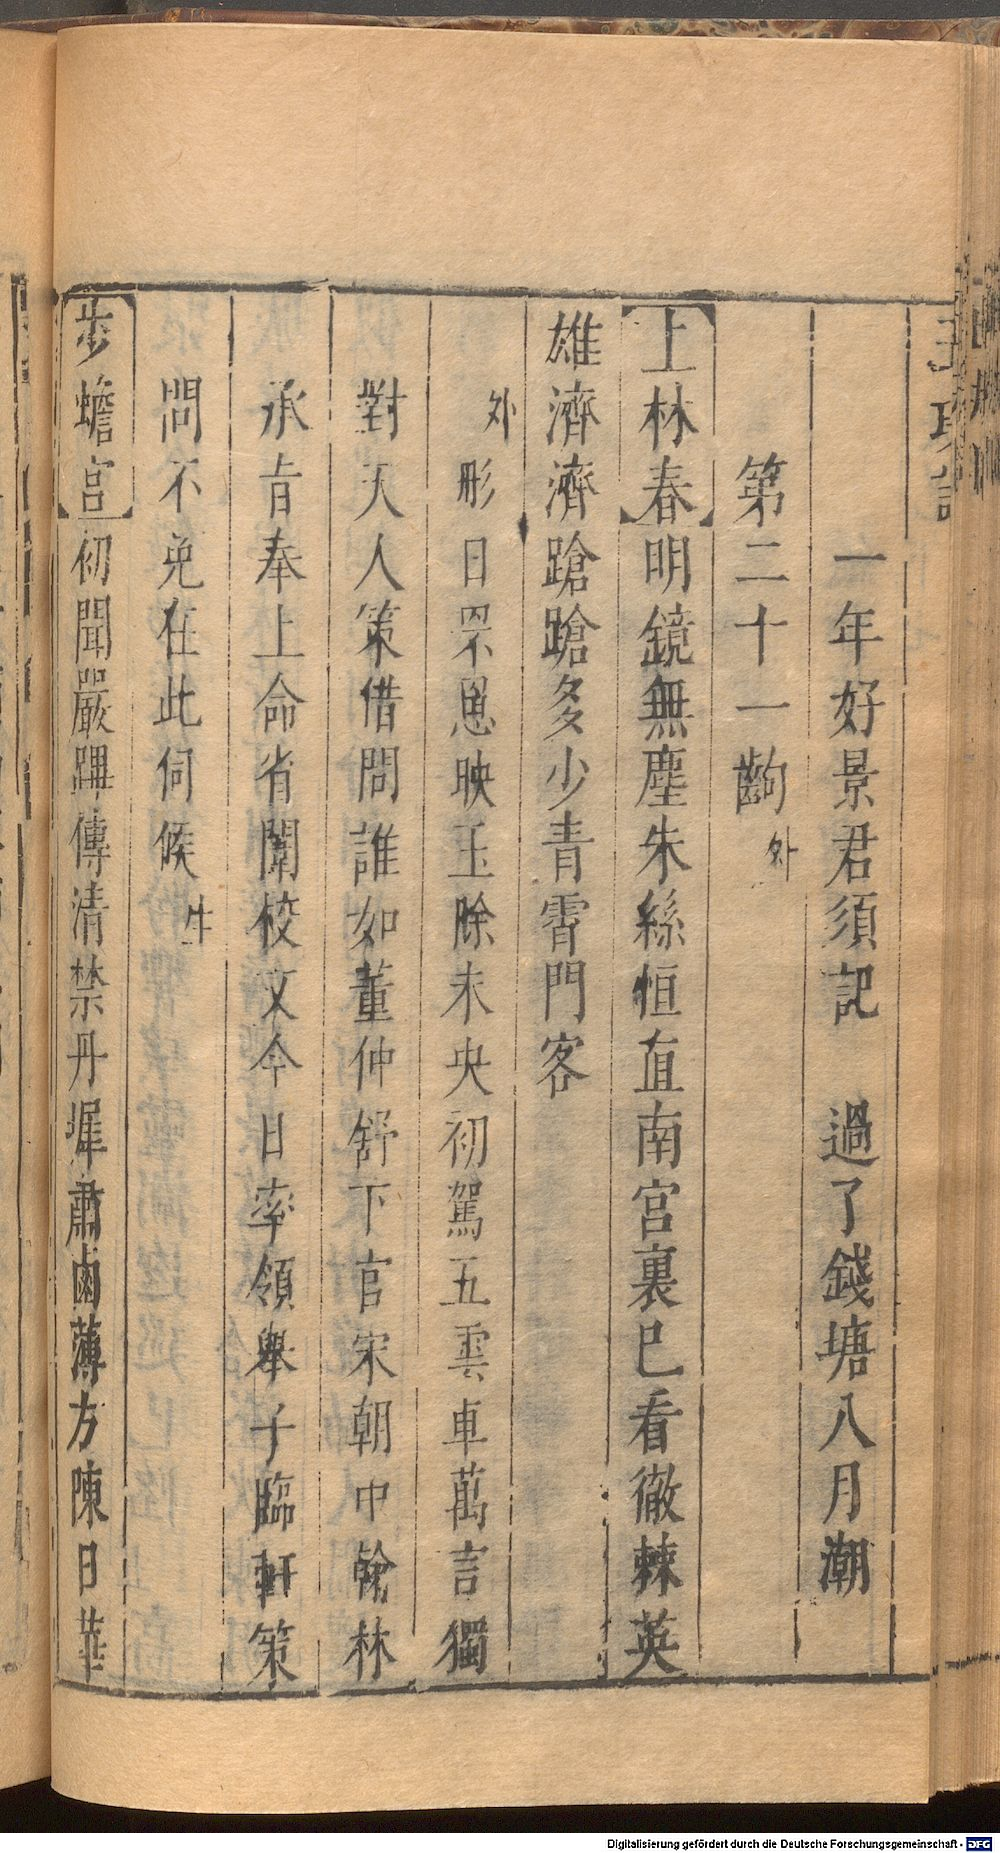 一年好景君須記　過了錢塘八月潮
第二十一齣 外
上林春明鏡無塵朱絲恒直南宮裏巳看徹棘英
雄濟濟蹌蹌多少青霄門客
外 彤日罘罳映玉除未央初駕五雲車萬言獨
對天人策借問誰如董仲舒下官宋朝中翰林
承肯奉上命省闈校文今日率領舉子臨軒策
問不免在此伺候 生
步蟾宮初聞嚴蹕傳清禁丹墀肅鹵薄方陳日華
Digitalisierung gefördert durch die Deutsche Forschungsgemeinschaft - DFG